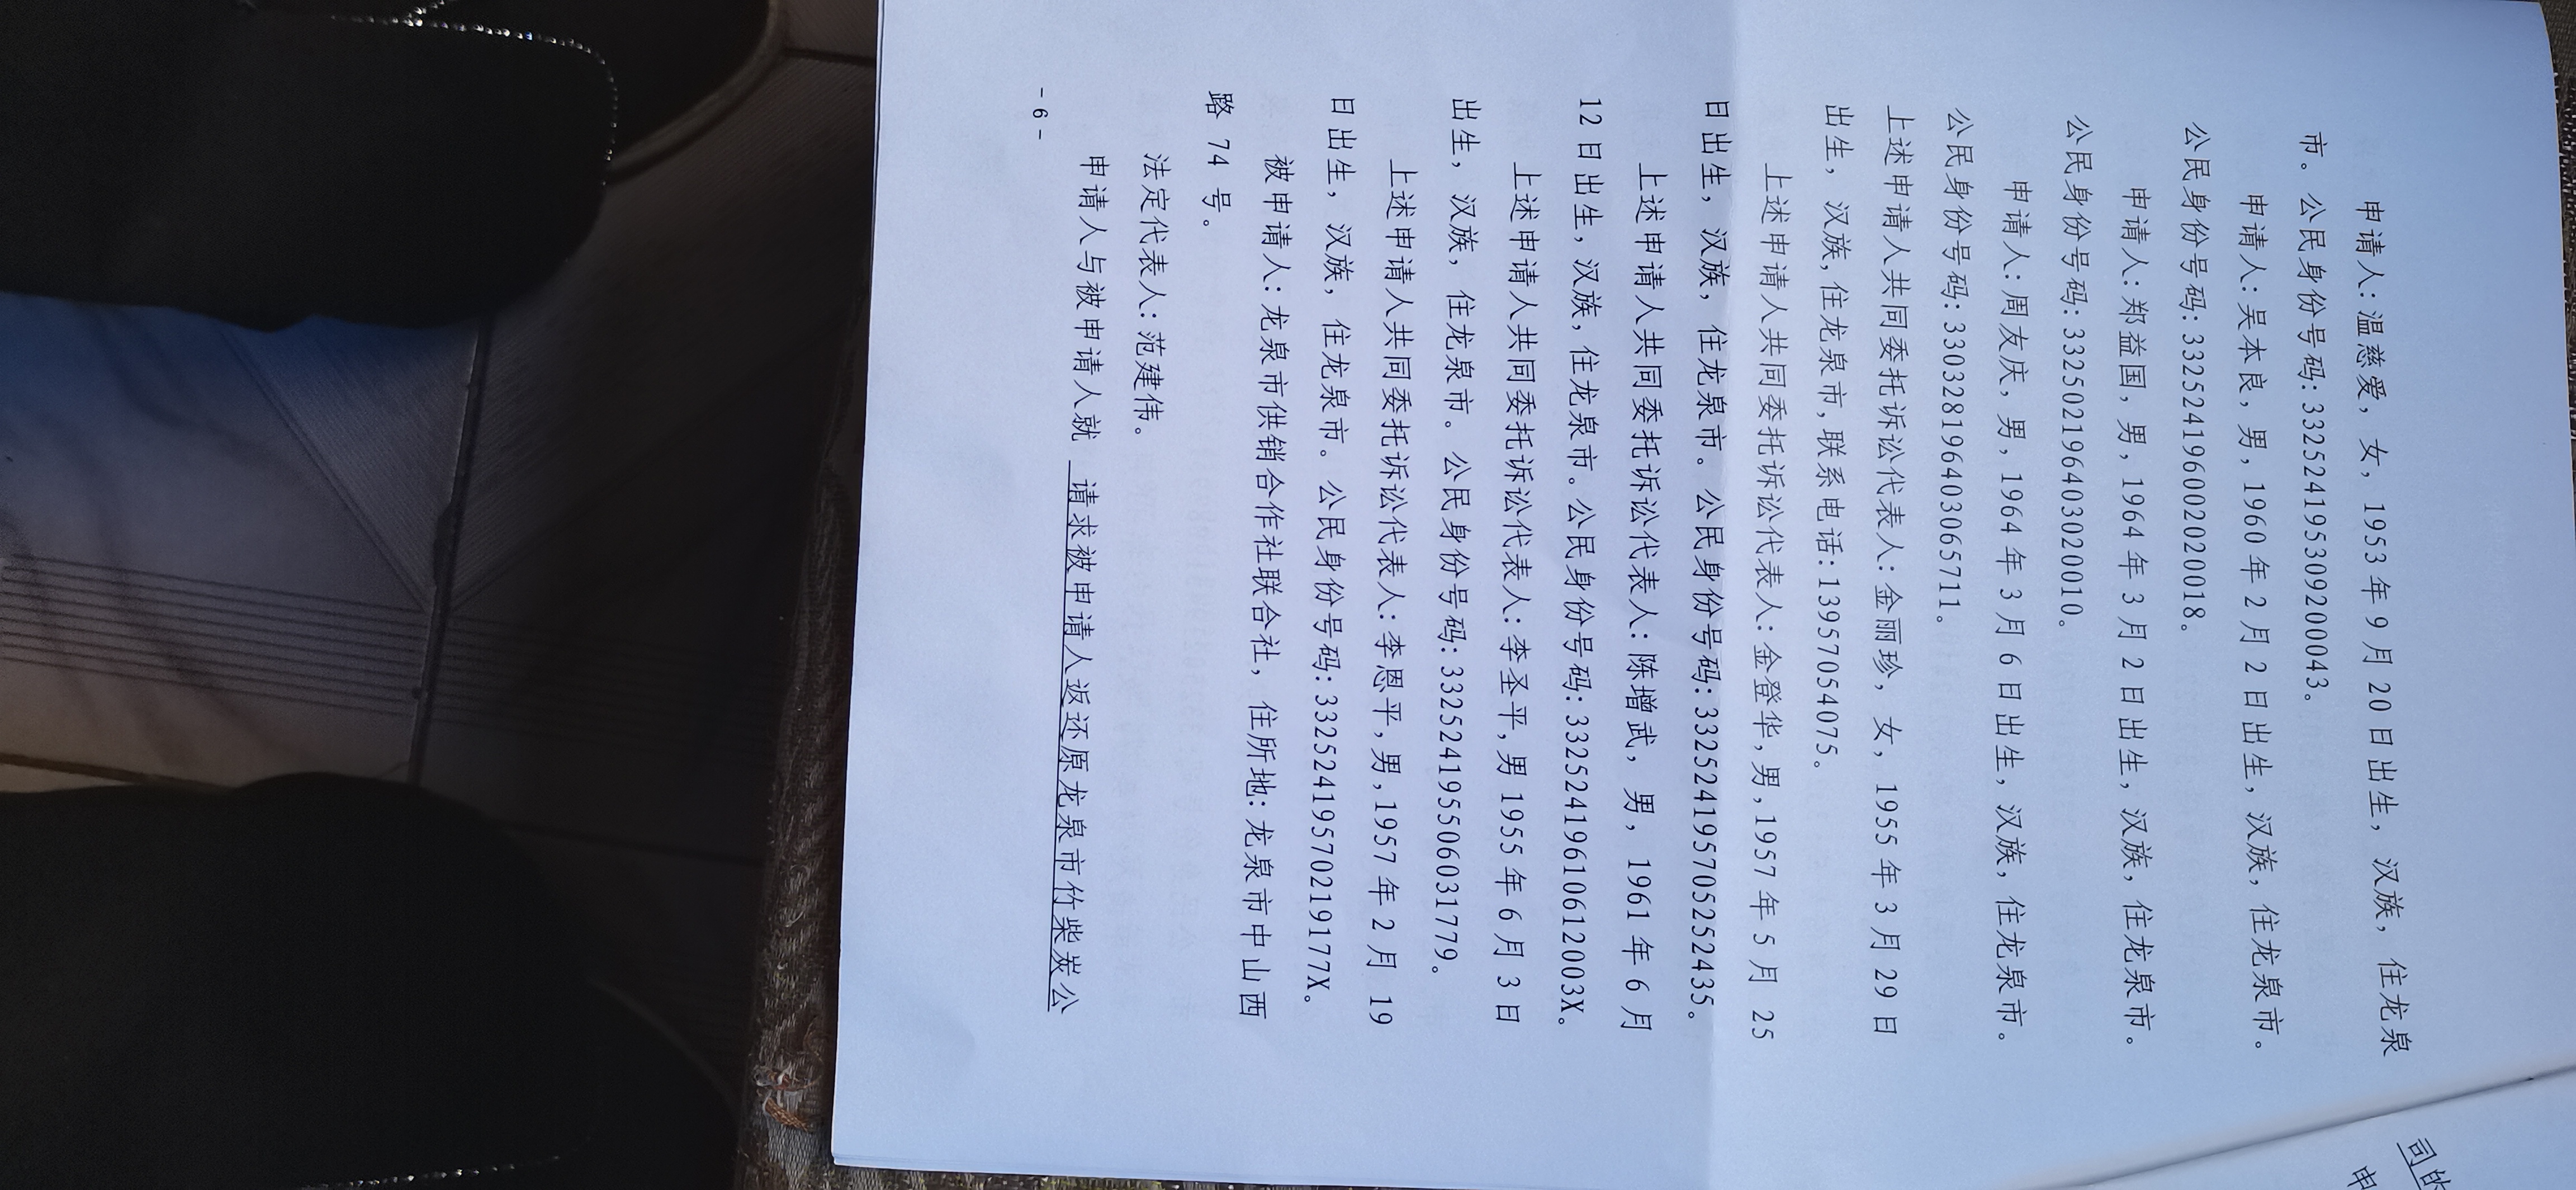 申请人：温慈爱，女，1953 年 9 月 20 日出生，汉族，住龙泉
市。公民身份号码：332524195309200043。
申请人：吴本良，男，1960 年 2 月 2 日出生，汉族，住龙泉市。
公民身份号码：332524196002020018。
申请人：郑益国，男，1964 年 3 月 2 日出生，汉族，住龙泉市。
公民身份号码：332502196403020010。
申请人：周友庆，男，1964 年 3 月 6 日出生，汉族，住龙泉市。
公民身份号码：330328196403065711。
上述申请人共同委托诉讼代表人：金丽珍，女，1955 年 3 月 29 日
出生，汉族，住龙泉市，联系电话：13957054075。
上述申请人共同委托诉讼代表人：金登华，男，1957 年 5 月 25
日出生，汉族，住龙泉市。公民身份号码：332524195705252435。
上述申请人共同委托诉讼代表人：陈增武，男，1961 年 6 月
12 日出生，汉族，住龙泉市。公民身份号码：33252419610612003X。
上述申请人共同委托诉讼代表人：李圣平，男 1955 年 6 月 3 日
出生，汉族，住龙泉市。公民身份号码：332524195506031779。
上述申请人共同委托诉讼代表人：李恩平，男，1957 年 2 月 19
日出生，汉族，住龙泉市。公民身份号码：33252419570219177X。
被申请人：龙泉市供销合作社联合社，住所地：龙泉市中山西
路 74 号。
法定代表人：范建伟。
申请人与被申请人就 请求被申请人返还原龙泉市竹柴炭公
- 6 -
司的
申